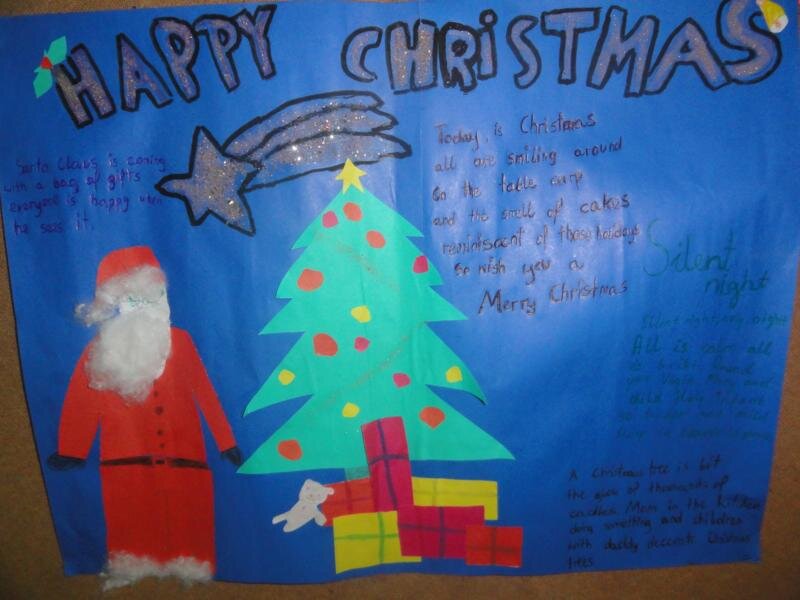 HAPPY CHRISTMAS
Santa Claus is coming
with a bag of gifts
everyone is happy when
he sees it.
Today, is Christmas
all are smiling around
On the table carp
and the smell of cakes
reminiscent of these holidays
So wish you a
Merry Christmas
Silent
night
Silent night, holy night
All is calm all
is bright round
yon Virgin Mary and
child Holy Infant
so tender and mild
sleep in heavenly peace
A christmas tree is lit
the glow of thousands of
candles. Mom in the kitchen
doing something and children
with daddy decorate Christmas
trees